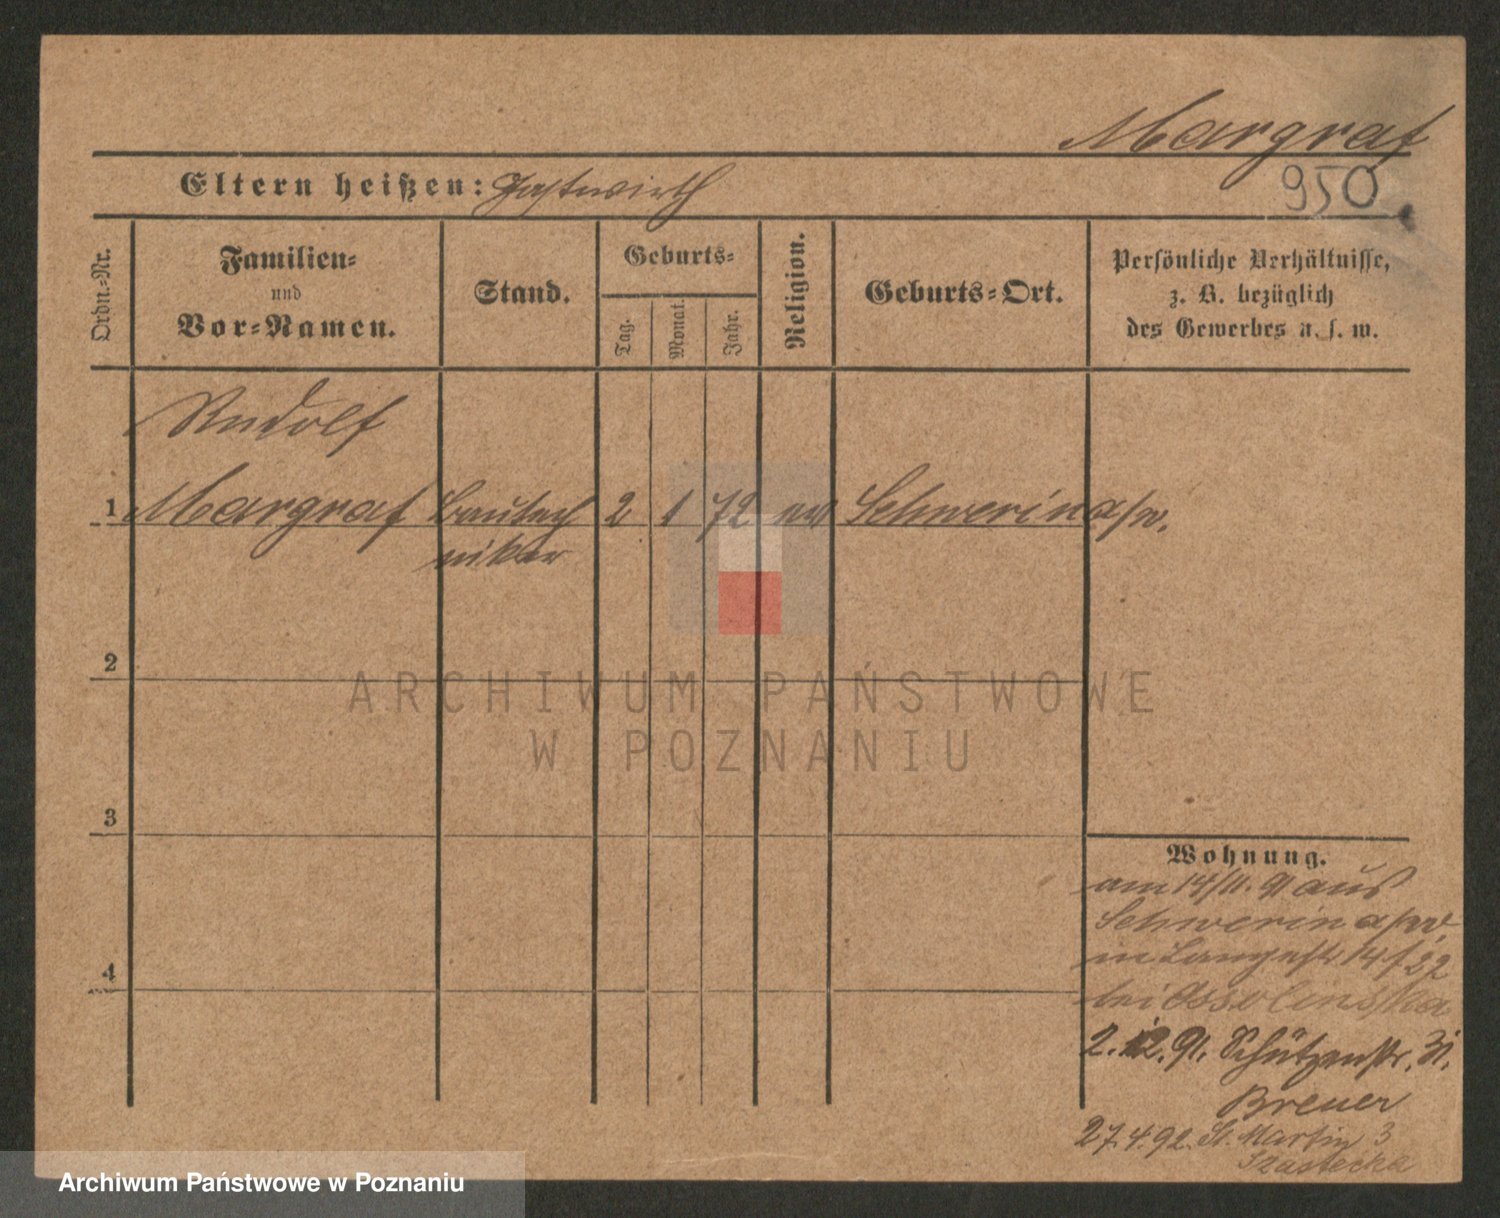 Margraf
Eltern heißen: Gastwirth
950
Ordn.-Nr.
Familien-
und
Vor-Namen.
Stand.
Geburts-
Tag.
Monat.
Jahr.
Religion.
Geburts-Ort.
Persönliche Verhältnisse,
z. B. bezüglich
des Gewerbes u. s. w.
Rudolf
1 Margraf Bautech 2 1 72 ev Schwerin a/w.
niker
ARCHIWUM PAŃSTWOWE
W POZNANIU
2
3
4
Wohnung.
am 14/11. 91 aus
Schwerin a/w
in Langestr. 14/22
bei Ossolinska
2. 12. 91. Schützenstr. 31.
Breuer
27.4.92. St. Martin 3
Szastecka
Archiwum Państwowe w Poznaniu